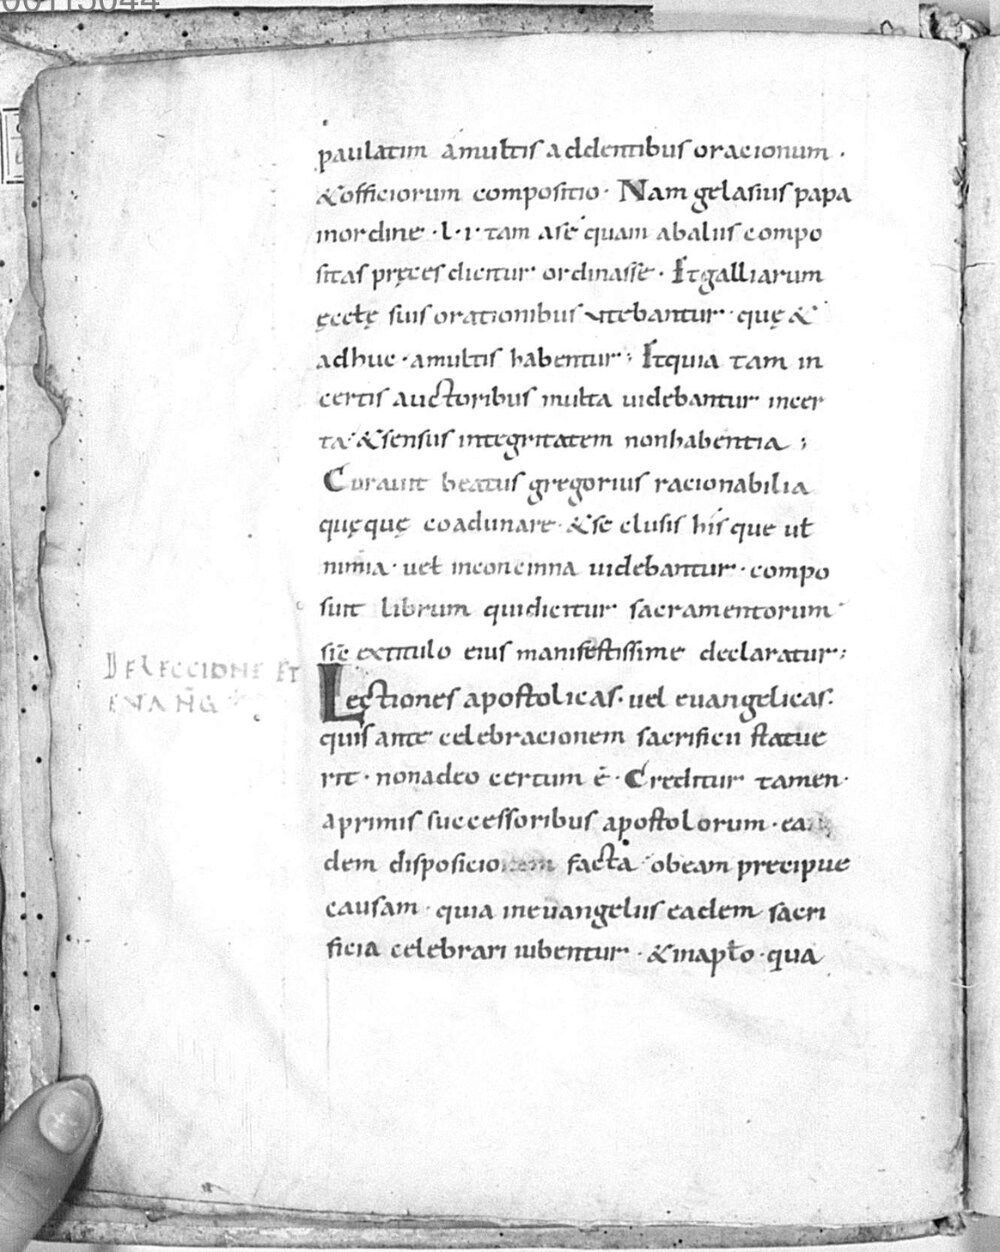 00115044
paulatim amultis addentibus oracionum ·
&officiorum compositio · Nam gelasius papa
inordine · l · i · tam ase quam abaliis compo
sitas pręces dicitur ordinasse · Et galliarum
ęcclę suis orationibus utebantur · quę &
adhuc · amultis habentur ; Et quia tam in
certis auctoribus multa uidebantur incer
ta · &sensus integritatem nonhabentia ;
Curauit beatus gregorius racionabilia
quęquę coadunare · &se clusis hisque ut
nimia · uel inconcinna uidebantur · compo
suit librum quidicitur sacramentorum
sic extitulo eius manifestissime declaratur ;
DE LECCIONE ET
EVANG̅
Lectiones apostolicas · uel euangelicas ·
quis ante celebracionem sacrificii statue
rit · nonadeo certum ē · Creditur tamen ·
aprimis successoribus apostolorum · ea
dem disposicionem facta · obeam precipue
causam · quia ineuangeliis eadem sacri
ficia celebrari iubentur · &inapło · qua